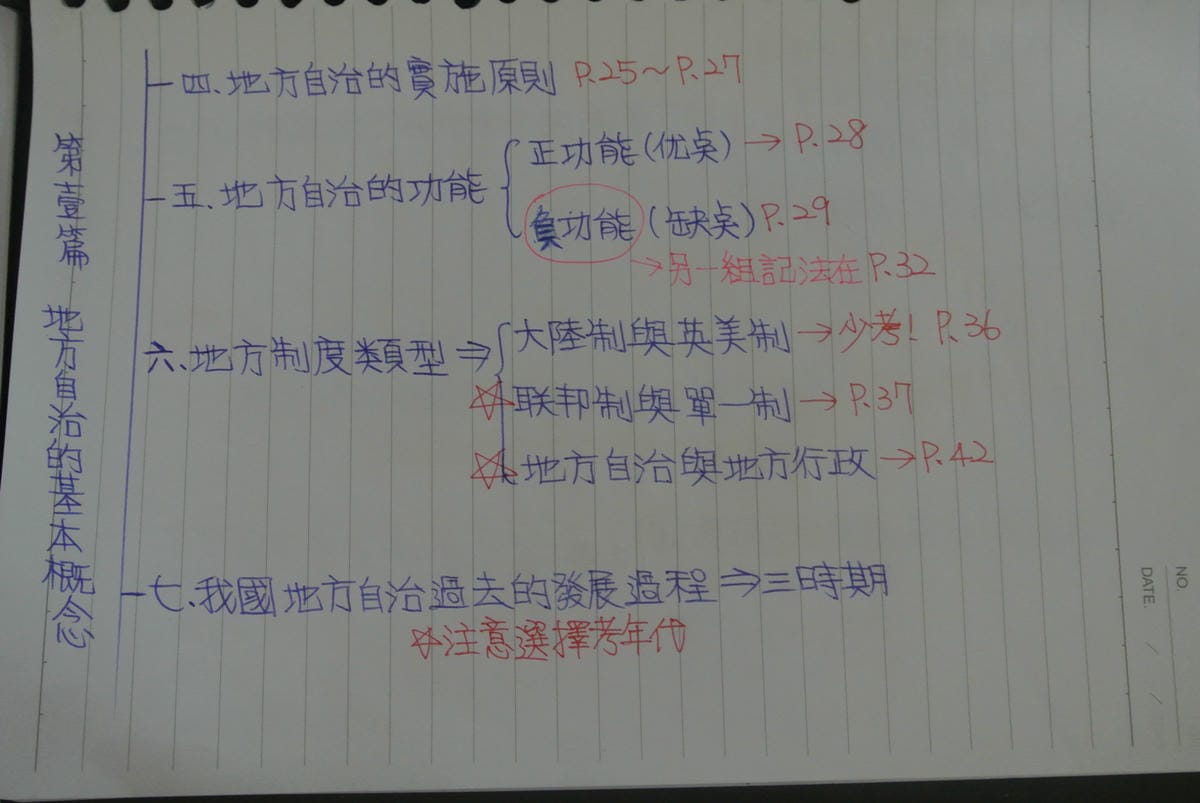 第壹篇 地方自治的基本概念
四.地方自治的實施原則 P.25~P.27
五.地方自治的功能
正功能(优奌)→P.28
負功能(缺奌)P.29
→另一組記法在P.32
六.地方制度類型⇒
大陸制與英美制→少考! P.36
☆联邦制與單一制→P.37
☆地方自治與地方行政→P.42
七.我國地方自治過去的發展過程⇒三時期
☆注意選擇考年代
NO.
DATE. / /